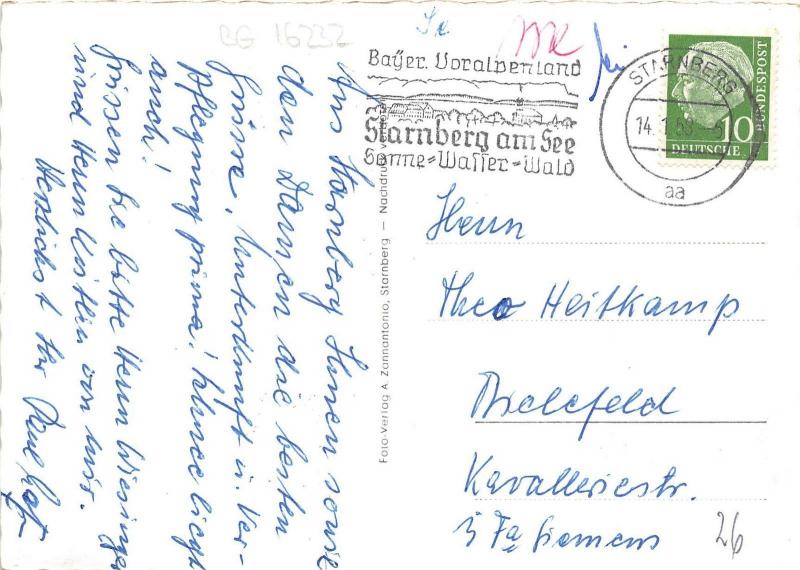 BG 16232
Bayer. Voralpenland
Starnberg am See
Sonne=Wasser=Wald
STARNBERG
14. 1. 58
aa
BUNDESPOST
10
DEUTSCHE
Aus Starnberg Ihnen sowie
den Damen die besten
Grüsse, Unterkunft u. Ver-
pflegung prima! Schnee liegt
auch!
Grüssen Sie bitte Herrn Wiesinger
und Herrn von mir.
Herzlichst Ihr Paul
Foto-Verlag A. Zannantonio, Starnberg — Nachdruck verboten
Herrn
Theo Heitkamp
Bielefeld
Kavalleriestr.
Fa Siemens
26